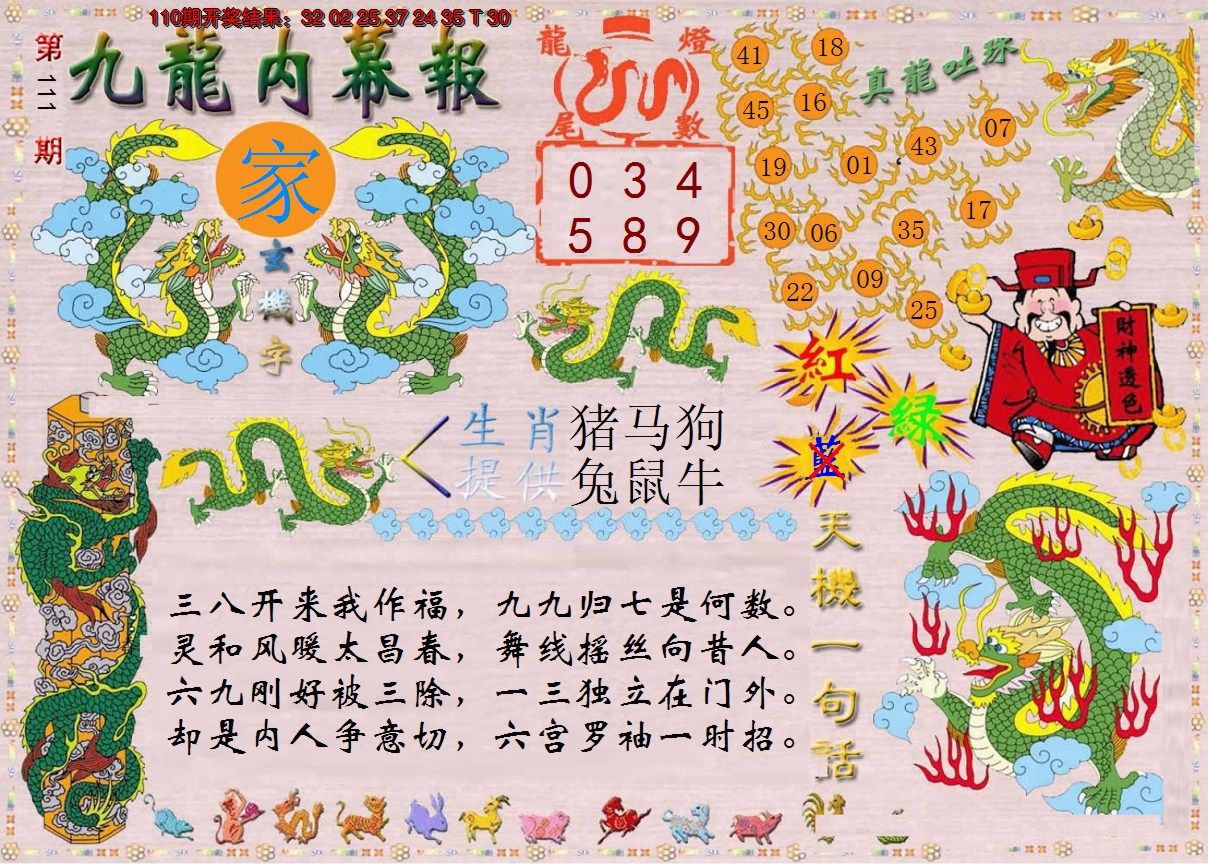 110期开奖结果：32 02 25 37 24 35 T 30
第111期
九龍内幕報
家
玄機字
龍燈
尾數
0 3 4
5 8 9
真龍吐珠
41 18
45 16
19 01 43 07
30 06 35 17
22 09 25
財神透色
紅
綠
藍
生肖 猪马狗
提供 兔鼠牛
天機一句話
三八开来我作福，九九归七是何数。
灵和风暖太昌春，舞线摇丝向昔人。
六九刚好被三除，一三独立在门外。
却是内人争意切，六宫罗袖一时招。